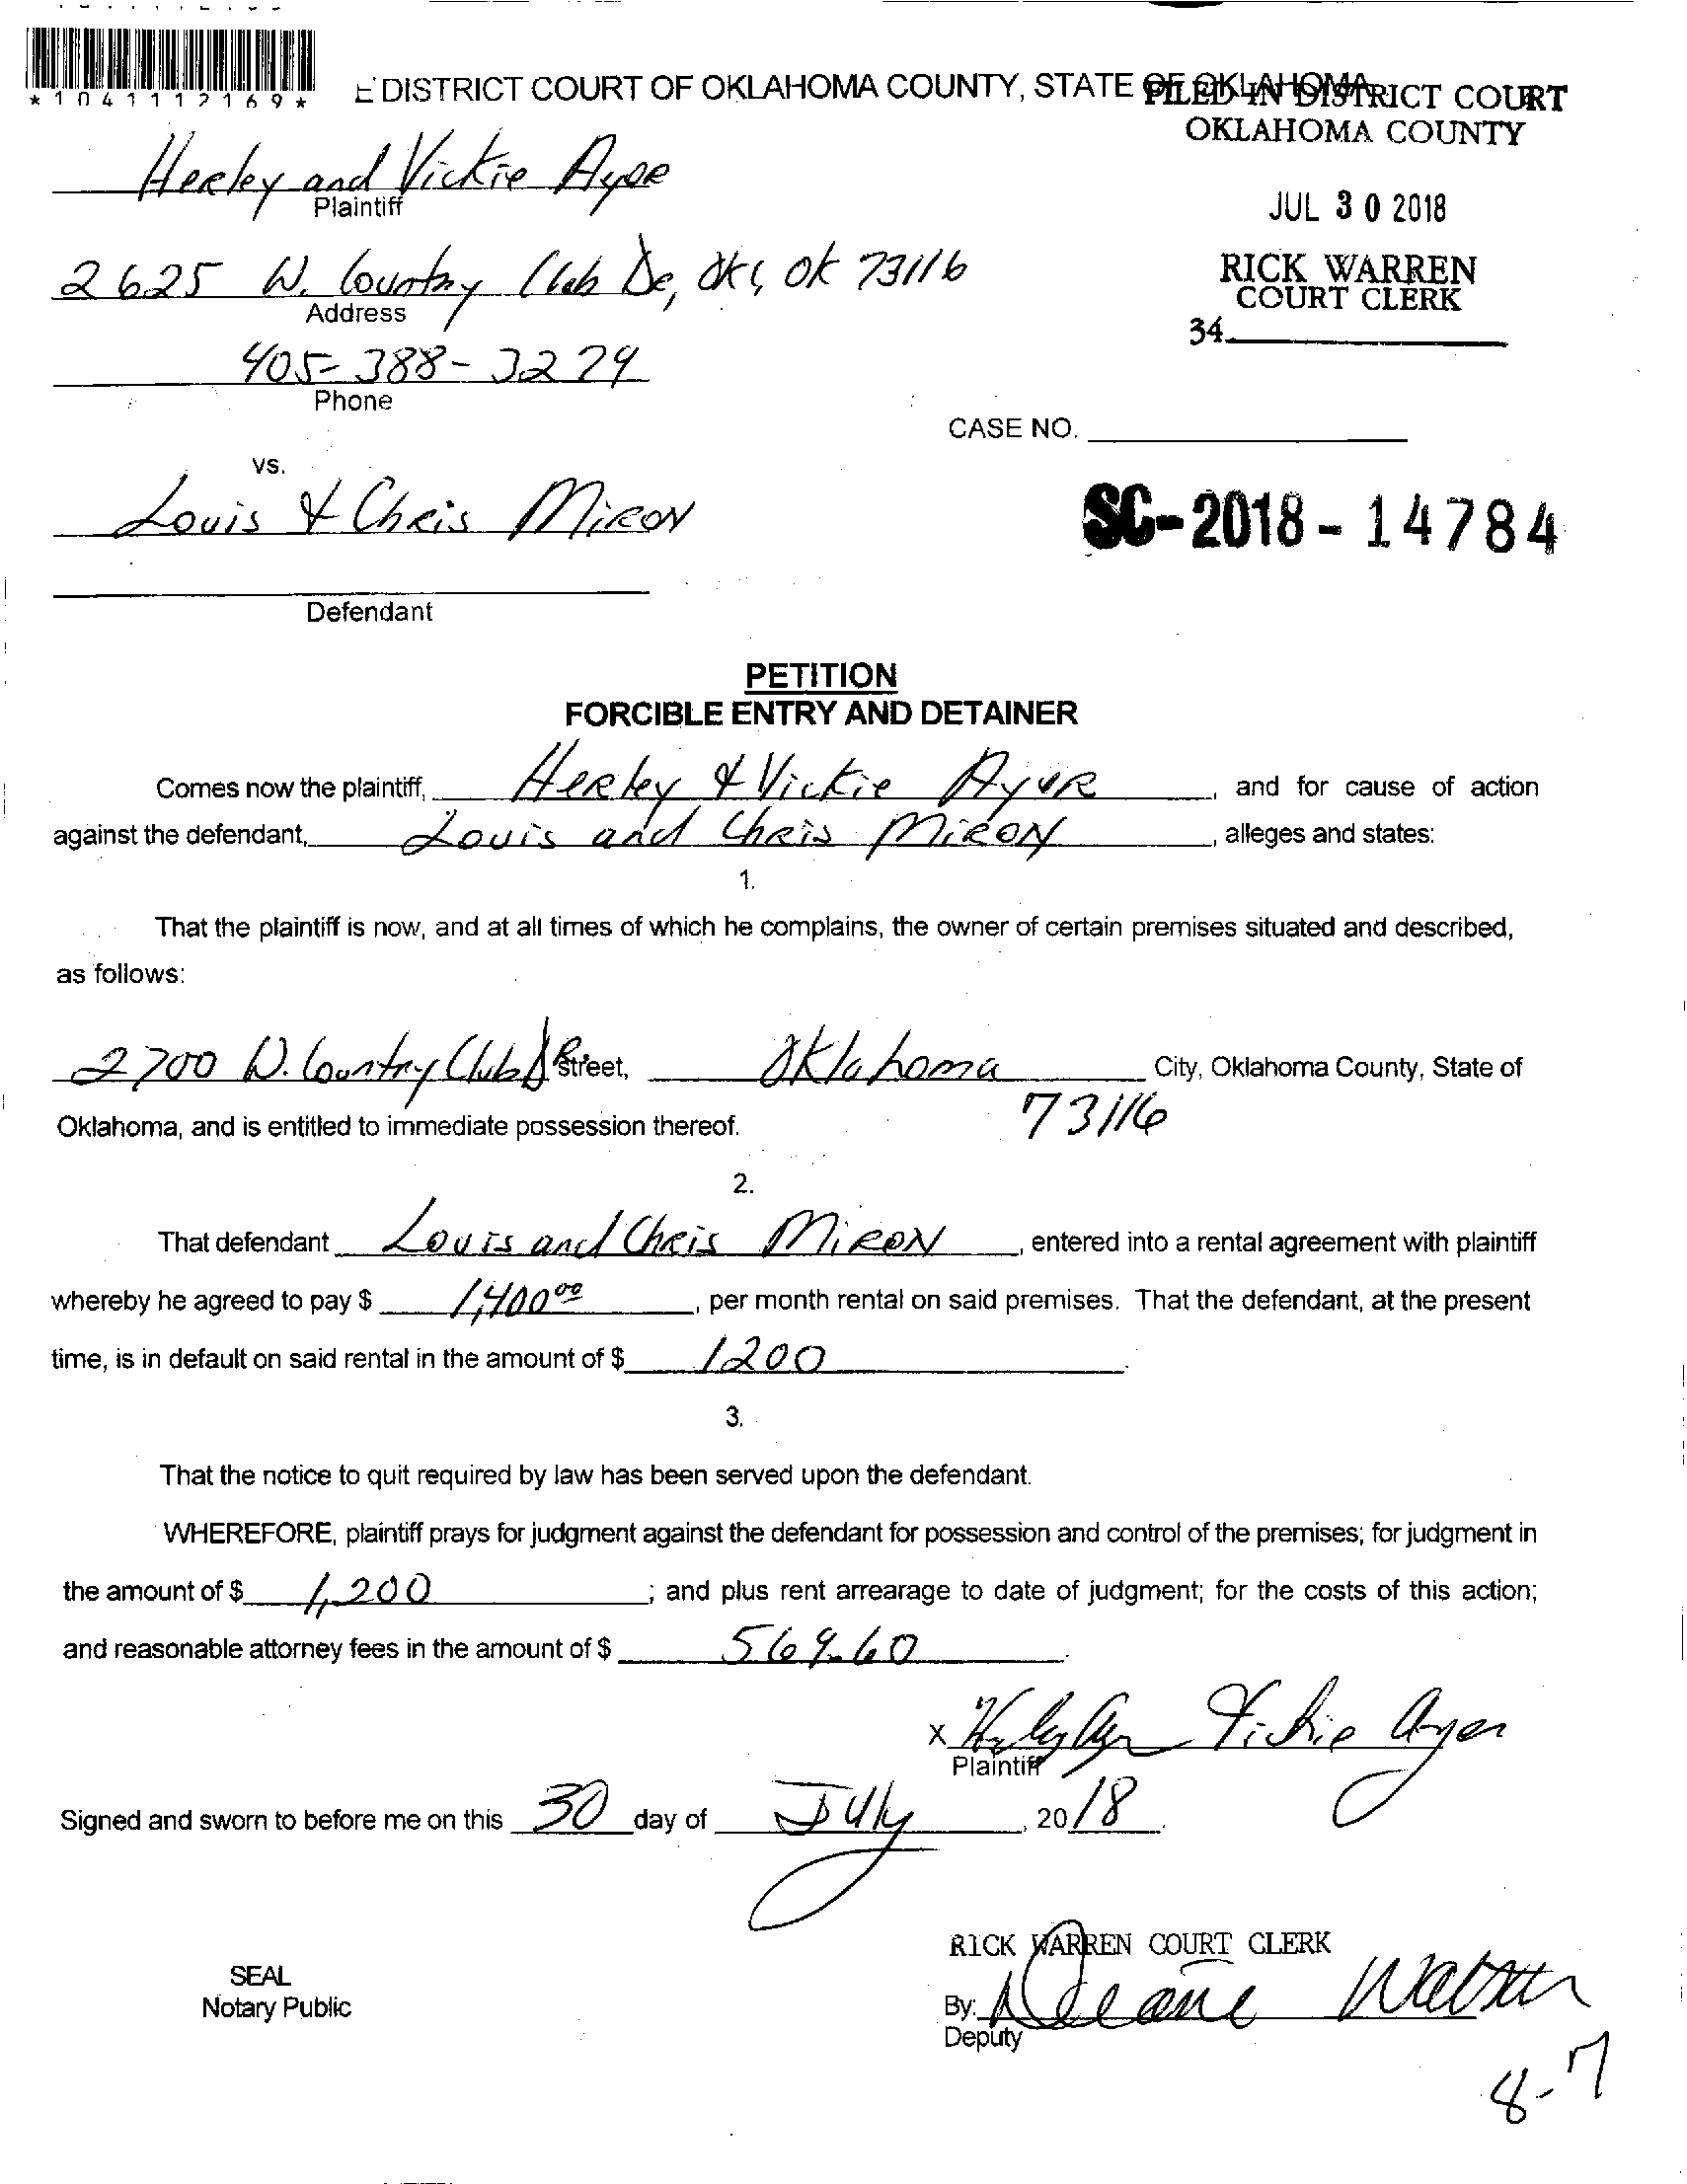 *1041112169*
E DISTRICT COURT OF OKLAHOMA COUNTY, STATE OF OKLAHOMA
FILED IN DISTRICT COURT
OKLAHOMA COUNTY
Herley and Vickie Ayer
Plaintiff
JUL 30 2018
2625 W. Country Club Dr, OKC, OK 73116
Address
RICK WARREN
COURT CLERK
34
405-388-3279
Phone
CASE NO.
vs.
Louis & Chris Miron
SC-2018-14784
Defendant
PETITION
FORCIBLE ENTRY AND DETAINER
Comes now the plaintiff, Herley & Vickie Ayer, and for cause of action
against the defendant, Louis and Chris Miron, alleges and states:
1.
That the plaintiff is now, and at all times of which he complains, the owner of certain premises situated and described,
as follows:
2700 W. Country Club Dr Street, Oklahoma City, Oklahoma County, State of
73116
Oklahoma, and is entitled to immediate possession thereof.
2.
That defendant Louis and Chris Miron, entered into a rental agreement with plaintiff
whereby he agreed to pay $ 1,400.00, per month rental on said premises. That the defendant, at the present
time, is in default on said rental in the amount of $ 1200.
3.
That the notice to quit required by law has been served upon the defendant.
WHEREFORE, plaintiff prays for judgment against the defendant for possession and control of the premises; for judgment in
the amount of $ 1,200; and plus rent arrearage to date of judgment; for the costs of this action;
and reasonable attorney fees in the amount of $ 569.60.
x Vickie Ayer
Plaintiff
Signed and sworn to before me on this 30 day of July, 2018.
RICK WARREN COURT CLERK
SEAL
Notary Public
By:
Deputy
8-7